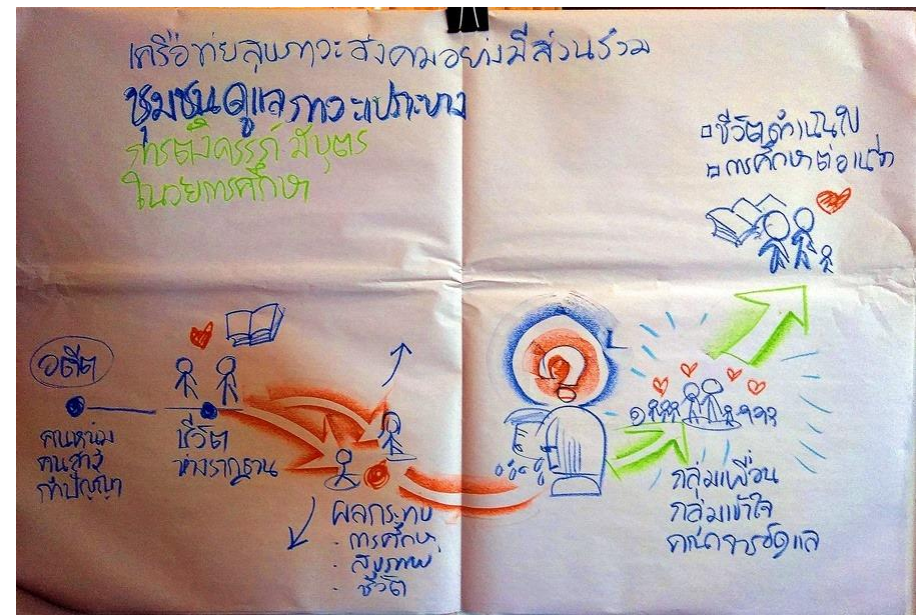 เครือข่ายสุขภาวะสังคมอย่างมีส่วนร่วม
ชุมชนดูแลภาวะเปราะบาง
การตั้งครรภ์ มีบุตร
ในวัยการศึกษา
ชีวิตดำเนินไป
การศึกษาต่อเนื่อง
อดีต
คนหนุ่ม
คนสาว
ชีวิต
ผลกระทบ
· การศึกษา
· สุขภาพ
· ชีวิต
?
กลุ่มเพื่อน
กลุ่มเข้าใจ